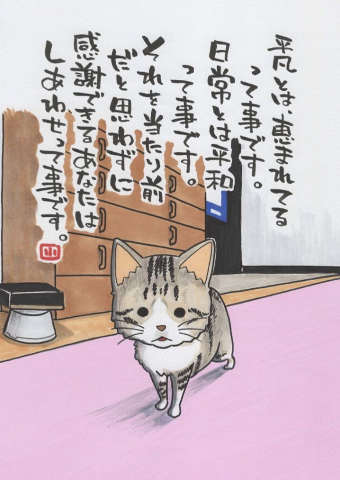 平凡とは恵まれてる
って事です。
日常とは平和
って事です。
それを当たり前
だと思わずに
感謝できるあなたは
しあわせって事です。